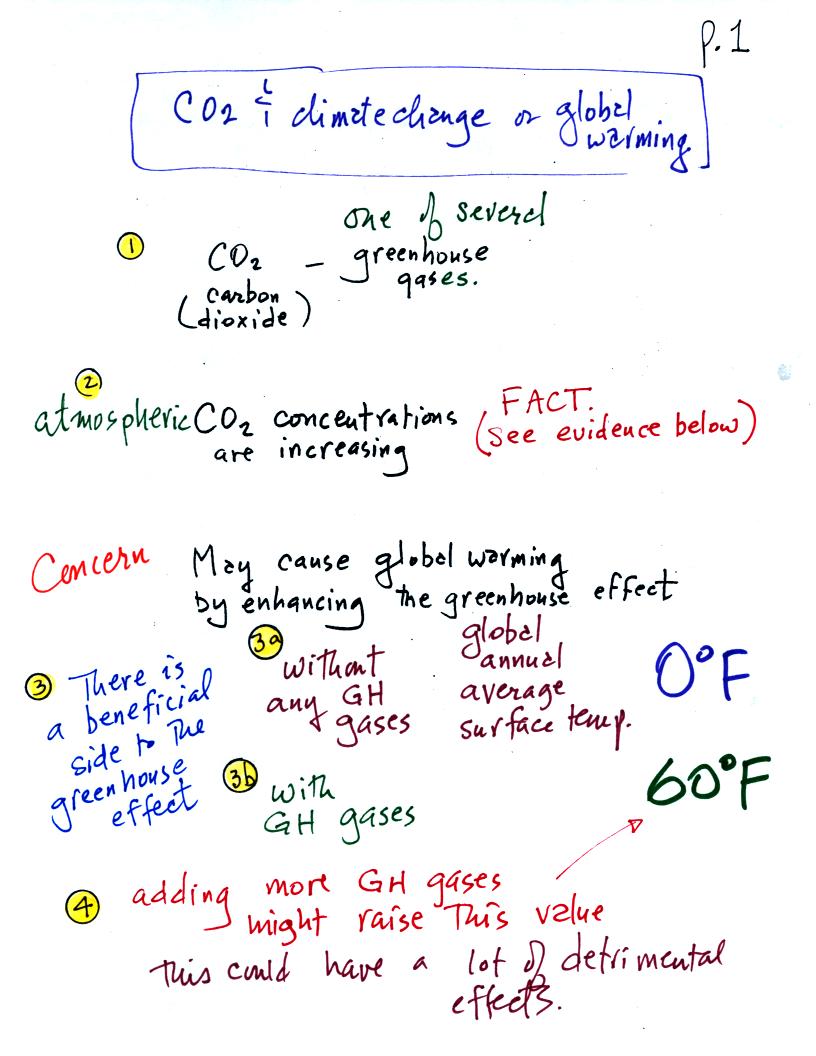 p. 1
CO2 & climate change or global
warming
one of several
① CO2 – greenhouse
gases.
(carbon
dioxide)
②
atmospheric CO2 concentrations
are increasing
FACT.
(see evidence below)
Concern May cause global warming
by enhancing the greenhouse effect
③ There is
a beneficial
side to the
greenhouse
effect
3a without
any GH
gases
global
annual
average
surface temp.
0°F
3b with
GH gases
60°F
④ adding more GH gases
might raise This value
this could have a lot of detrimental
effects.